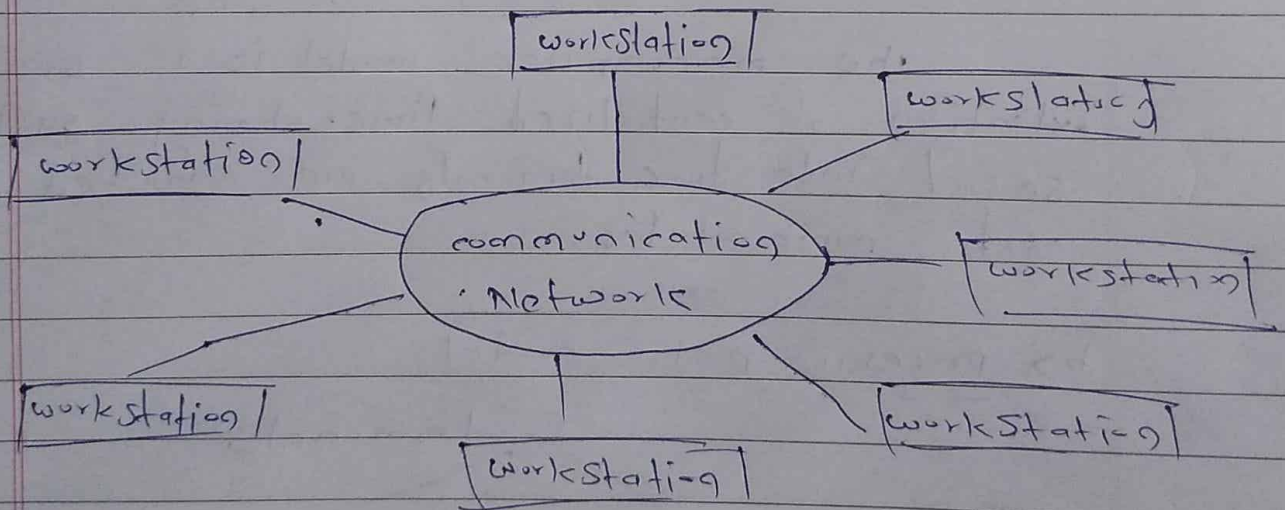 workstation
workstation
workstation
communication
Network
workstation
workstation
workstation
workstation